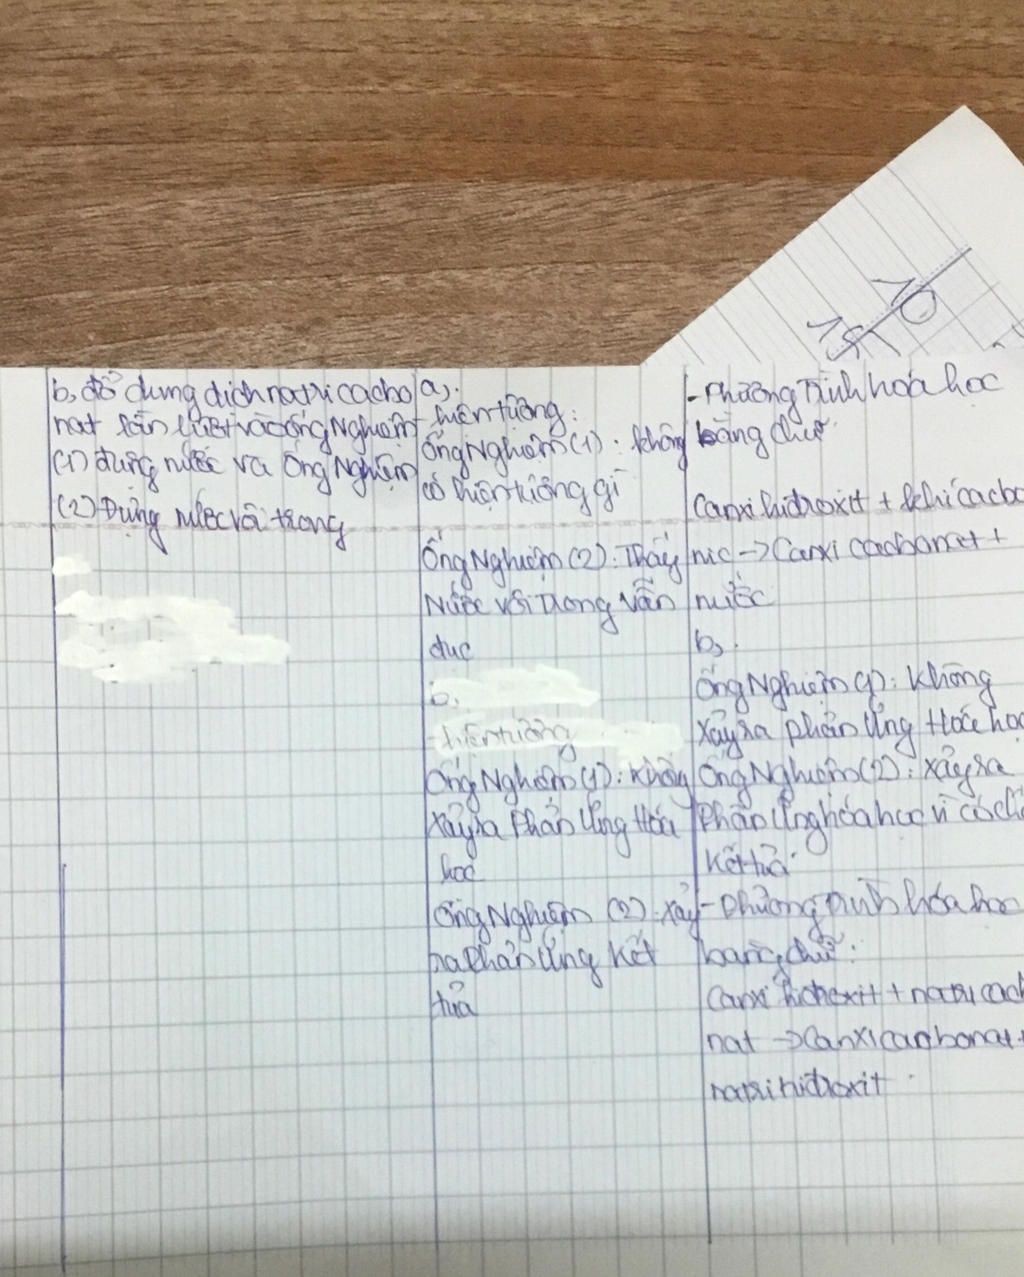 b, đổ dung dịch natri cacbo
nat lần lượt vào ống Nghiệm
(1) đựng nước và ống Nghiệm
(2) Đựng nước vôi trong
a,
- hiện tượng:
Ống Nghiệm (1): không
có hiện tượng gì
Ống Nghiệm (2): Thấy
Nước vôi Trong vẫn
đục
b,
- hiện tượng
Ống Nghiệm (1): không
xảy ra Phản Ứng Hóa
học
Ống Nghiệm (2): xảy
ra Phản Ứng kết
tủa
- Phương Trình hoá học
bằng chữ
Canxi hidroxit + khí cacbo
nic -> Canxi cacbonat +
nước
b,
Ống Nghiệm (1): Không
xảy ra phản Ứng Hoá học
Ống Nghiệm (2): xảy ra
Phản Ứng hóa học vì có
kết tủa
- Phương trình hóa học
bằng chữ:
Canxi hidroxit + natri cacb
nat -> Canxi cacbonat +
natri hidroxit.
15
10